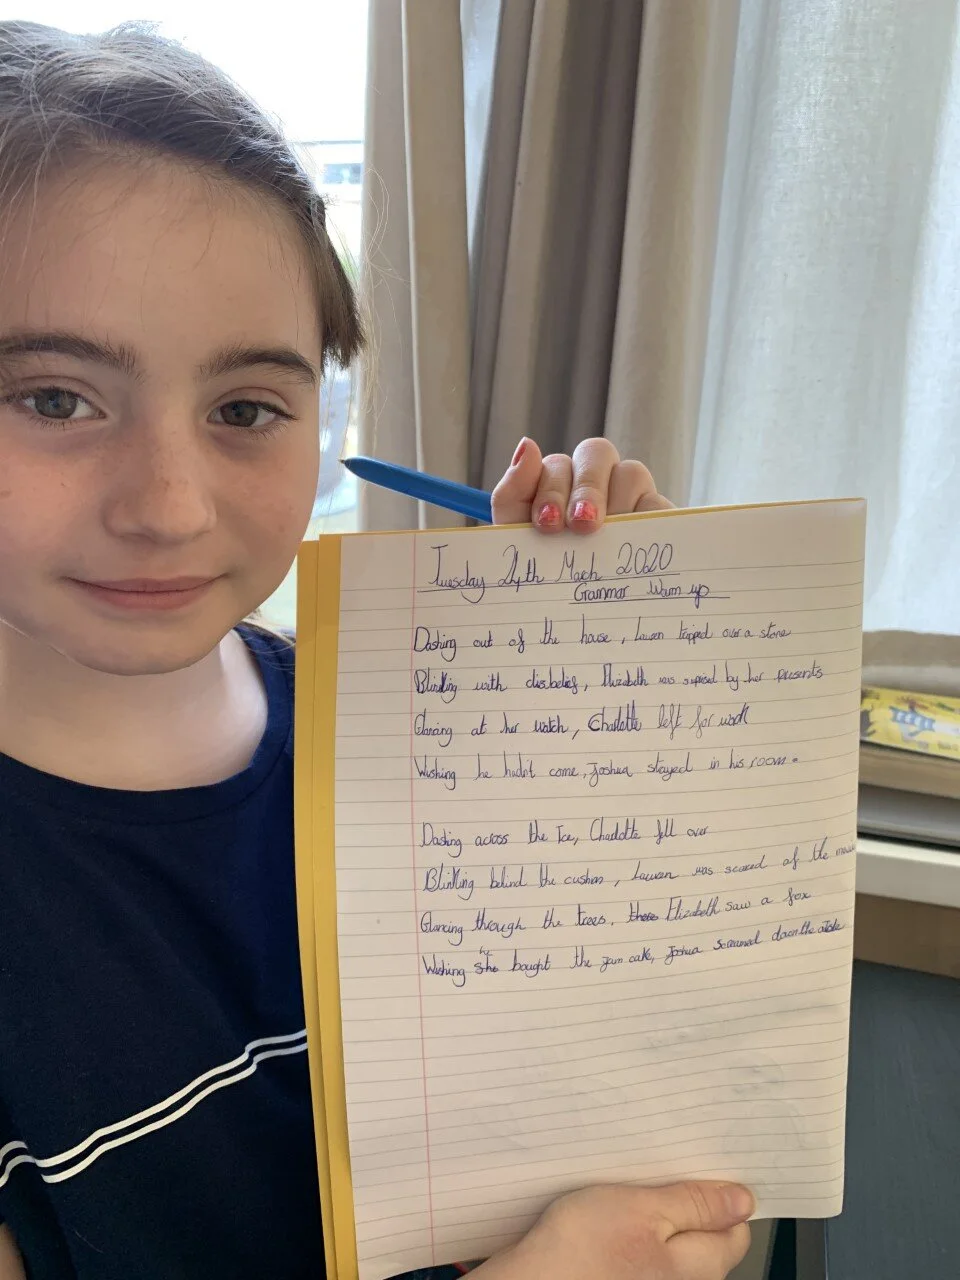 Tuesday 24th Mach 2020
Grammar Warm up
Dashing out of the house, Lauren tripped over a stone
Blinking with disbelief, Elizabeth was suprised by her presents
Glancing at her watch, Charlotte left for work
Wishing he hadn't come, Joshua stayed in his room.
Dashing across the Ice, Charlotte fell over
Blinking behind the cushion, Lauren was scared of the
Glancing through the trees, there Elizabeth saw a fox
he
Wishing she bought the jam cake, Joshua screamed down the